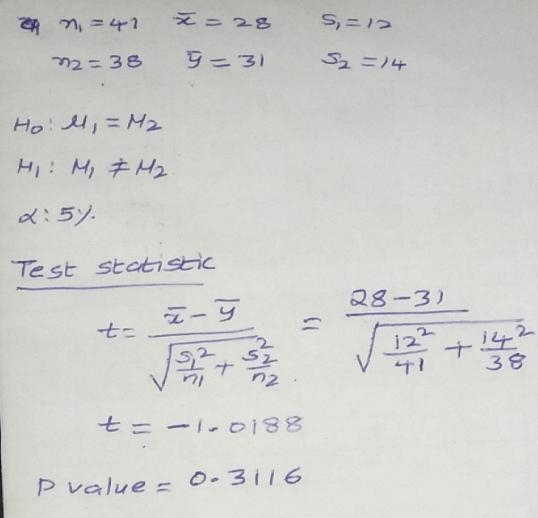 n₁ = 41 x̄ = 28 S₁ = 12
n₂ = 38 ȳ = 31 S₂ = 14
H₀: μ₁ = μ₂
H₁: μ₁ ≠ μ₂
α: 5%.
Test statistic
t = (x̄ - ȳ) / √(S₁²/n₁ + S₂²/n₂) = (28 - 31) / √(12²/41 + 14²/38)
t = -1.0188
P value = 0.3116